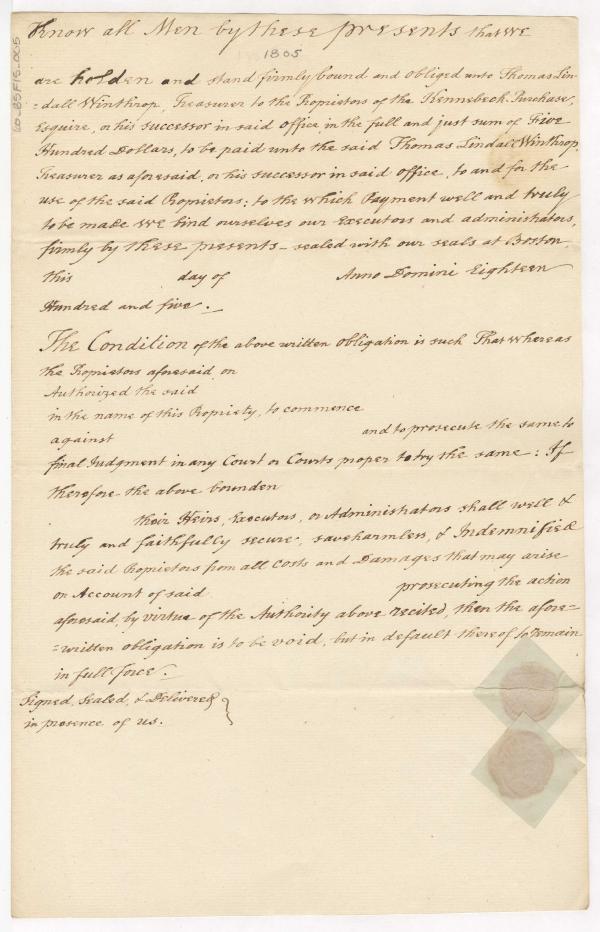 Know all Men by these presents that We
1805
are holden and stand firmly bound and obliged unto Thomas Lin-
=dall Winthrop, Treasurer to the Proprietors of the Kennebeck Purchase,
Esquire, or his successor in said office in the full and just sum of Five
Hundred Dollars, to be paid unto the said Thomas Lindall Winthrop,
Treasurer as aforesaid, or his successor in said office, to and for the
use of the said Proprietors; to the which Payment well and truly
to be made We bind ourselves our Executors and administrators,
firmly by these presents – sealed with our seals at Boston,
this day of Anno Domini Eighteen
Hundred and five.
The Condition of the above written obligation is such That whereas
the Proprietors aforesaid, on
Authorized the said
in the name of this Propriety, to commence
against and to prosecute the same to
final Judgment in any Court or Courts proper to try the same: If
therefore the above bounden
their Heirs, Executors, or Administrators shall well &
truly and faithfully secure, save harmless, & Indemnified
the said Propietors from all Costs and Damages that may arise
on Account of said prosecuting the action
aforesaid, by virtue of the Authority above recited, then the afore=
=written obligation is to be void, but in default thereof to remain
in full force.
Signed, Sealed, & Delivered }
in presence of us.